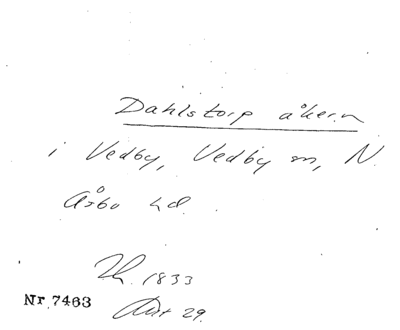 Dahlstorp åkern
i Vedby, Vedby sn, N.
Åsbo hd.
1833
Nr. 7463
Akt 29.